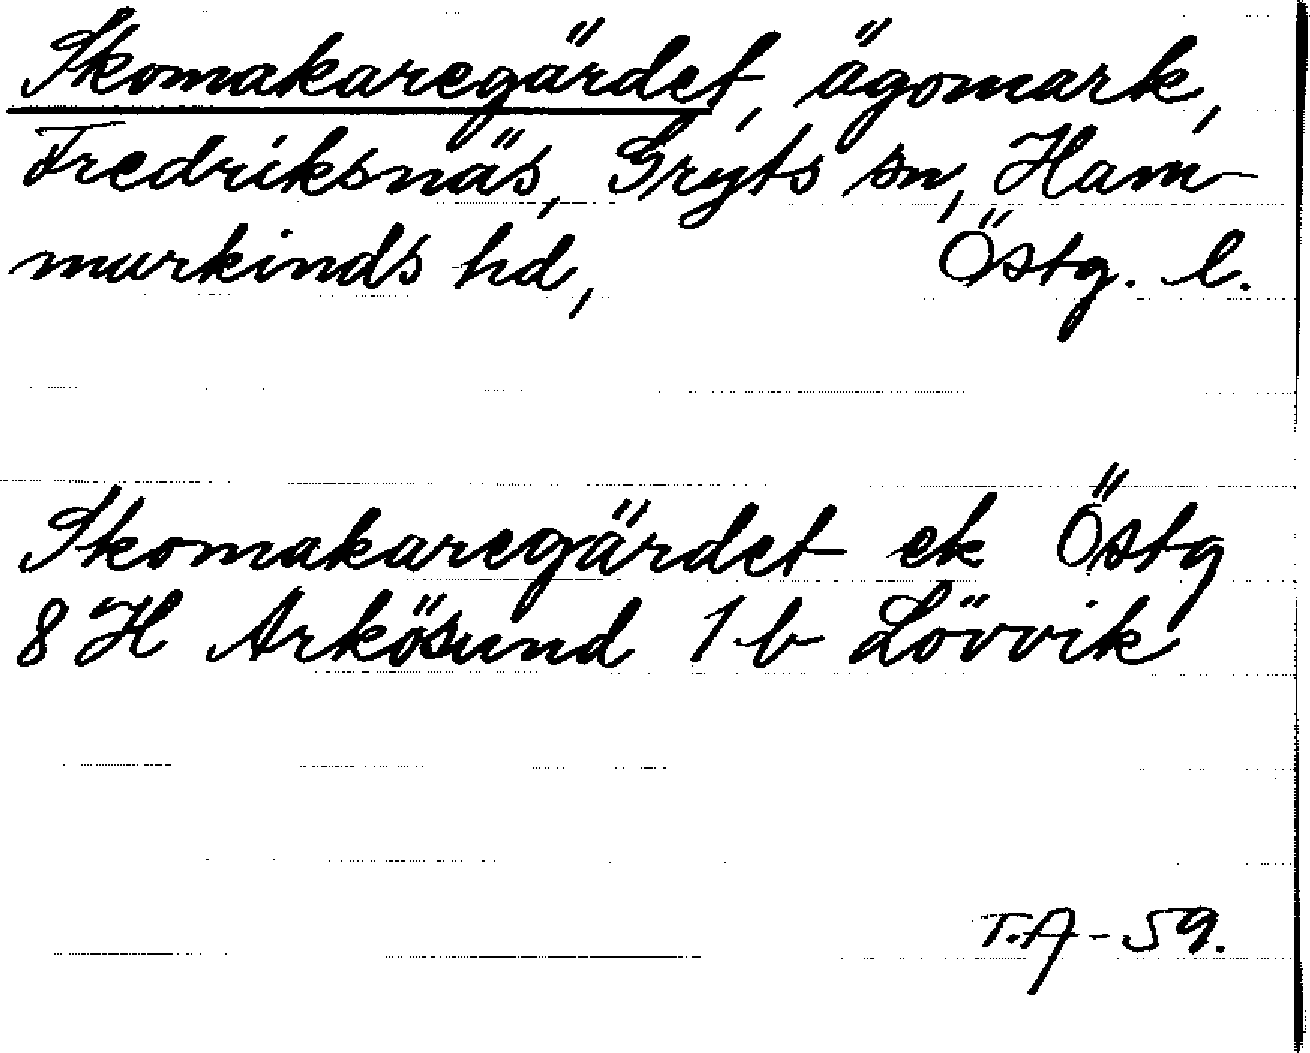 Skomakaregärdet, ägomark,
Fredriksnäs, Gryts sn, Ham-
murkinds hd, Östg. l.
Skomakaregärdet ek Östg
8 H Arkösund 1 b Lövvik
T.A-59.